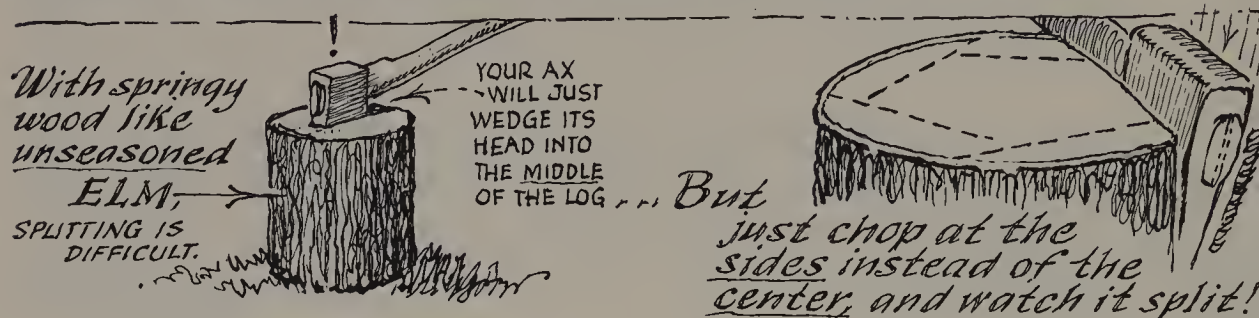 With springy
wood like
unseasoned
ELM,
SPLITTING IS
DIFFICULT.
!
YOUR AX
WILL JUST
WEDGE ITS
HEAD INTO
THE MIDDLE
OF THE LOG ... But
just chop at the
sides instead of the
center, and watch it split!